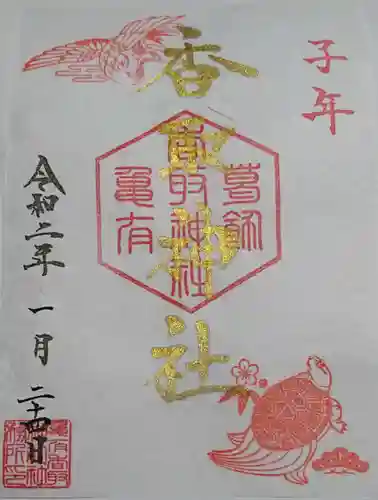 子年
香取神社
葛飾
香取神社
亀有
令和二年一月二十四日